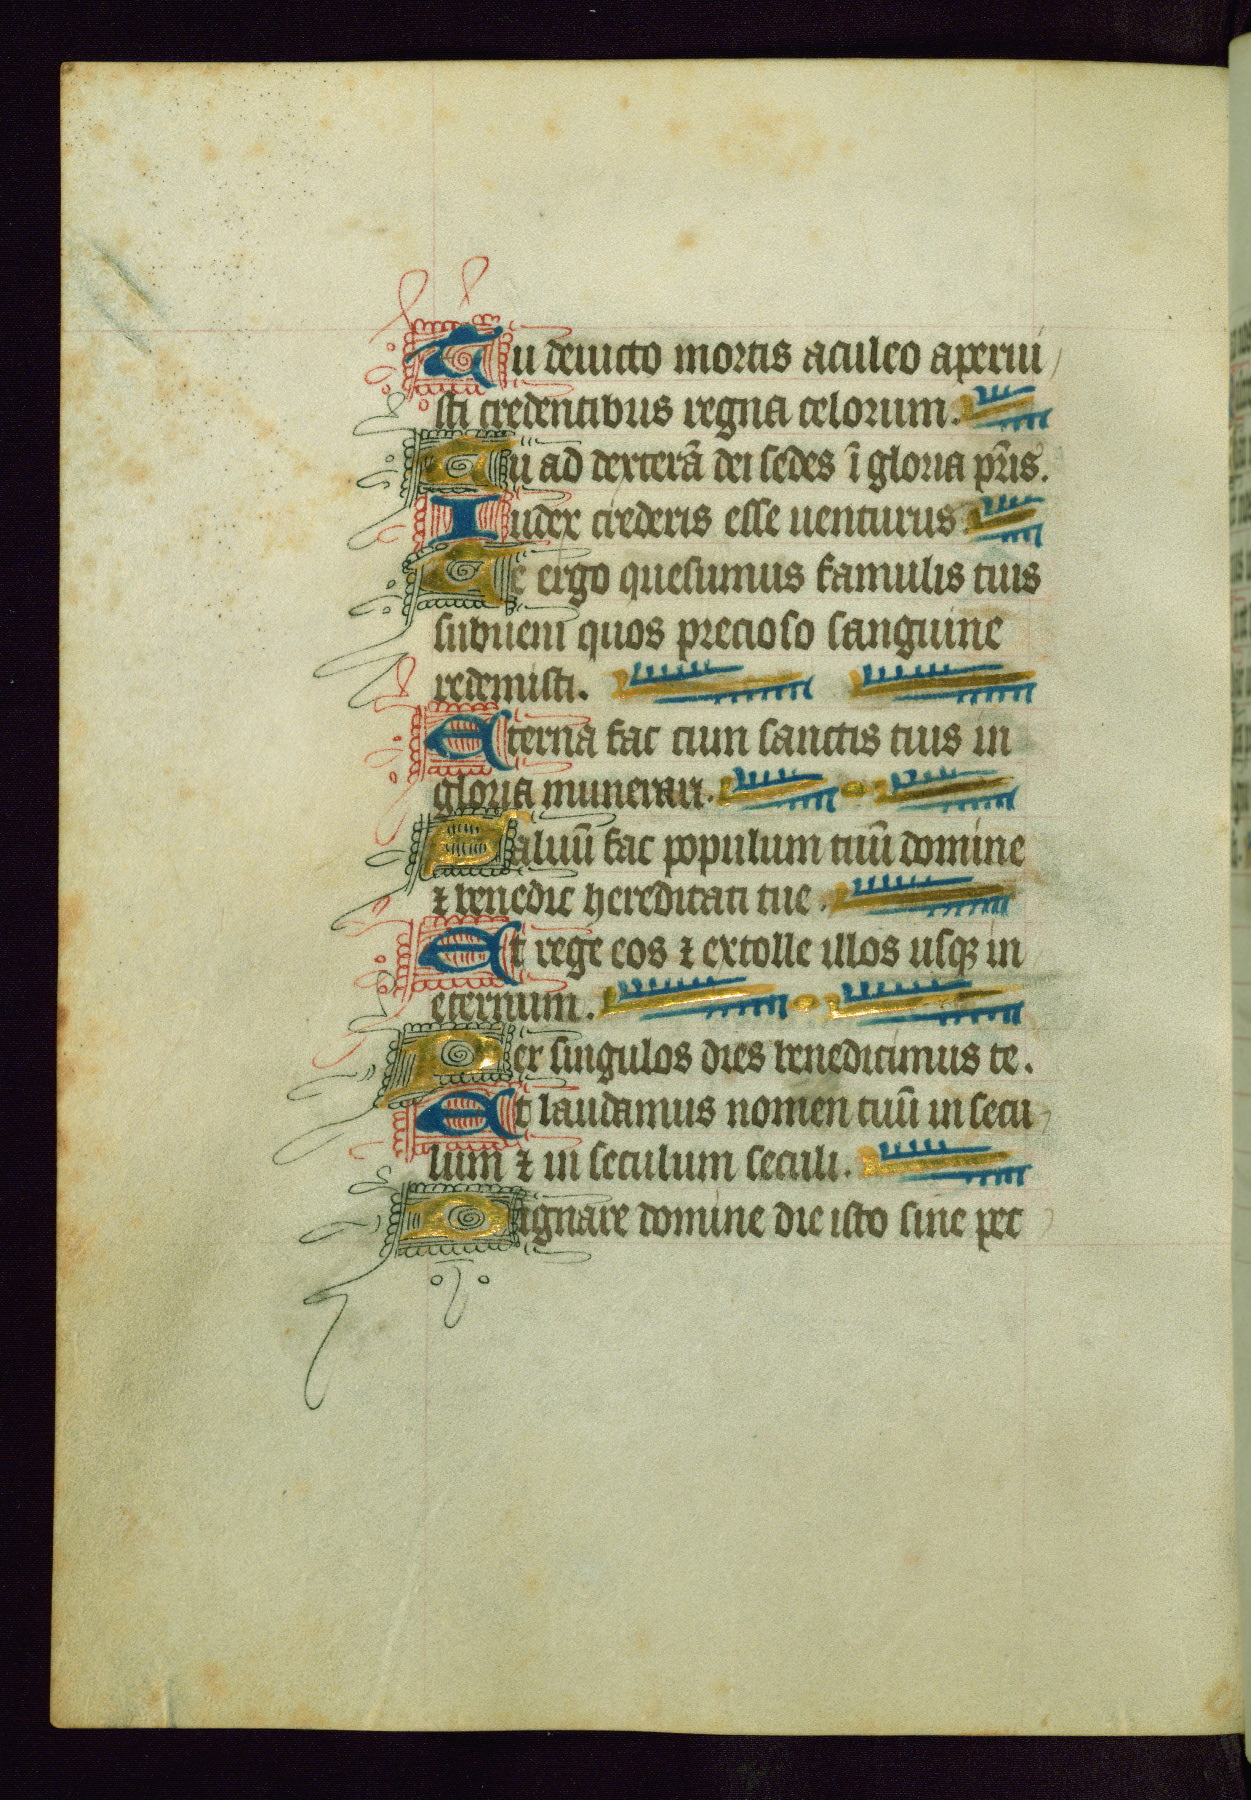 Tu deuicto mortis aculeo aperui
sti credentibus regna celorum.
Tu ad dexterā dei sedes ī gloria pr̄is.
Iudex crederis esse uenturus
Te ergo quesumus famulis tuis
subueni quos precioso sanguine
redemisti.
Eterna fac cum sanctis tuis in
gloria munerari.
Saluū fac populum tuū domine
⁊ benedic hereditati tue.
Et rege eos ⁊ extolle illos usqꝫ in
eternum.
Per singulos dies benedicimus te.
Et laudamus nomen tuū in secu
lum ⁊ in seculum seculi.
Dignare domine die isto sine pec